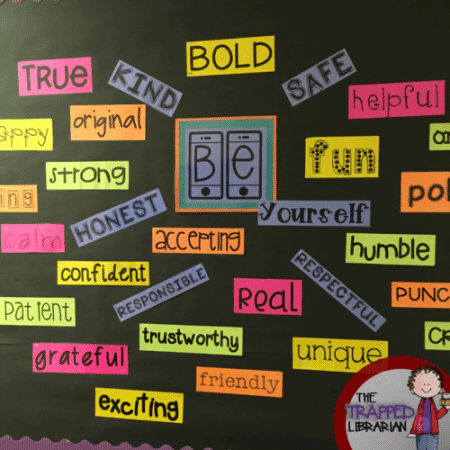 BOLD
TRUE
KIND
SAFE
helpful
original
fun
Be
strong
yourself
HONEST
calm
accepting
humble
confident
RESPONSIBLE
RESPECTFUL
Real
PUNC
patient
trustworthy
unique
grateful
friendly
exciting
THE
TRAPPED
LIBRARIAN